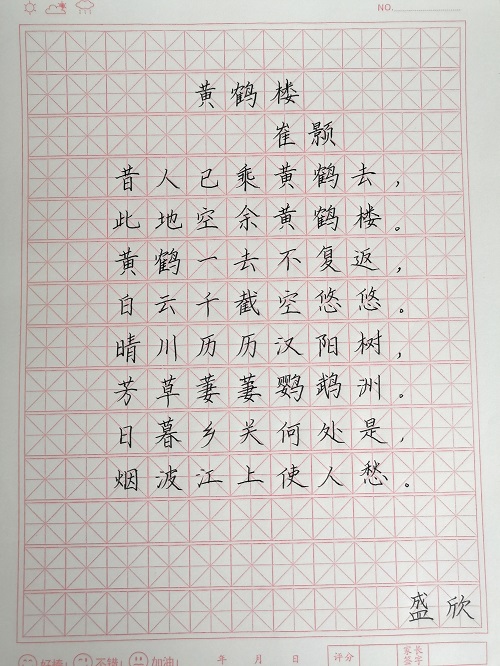 NO.
黄鹤楼
崔颢
昔人已乘黄鹤去,
此地空余黄鹤楼。
黄鹤一去不复返,
白云千截空悠悠。
晴川历历汉阳树,
芳草萋萋鹦鹉洲。
日暮乡关何处是,
烟波江上使人愁。
盛欣
好棒! 不错! 加油! 年 月 日 评分 家长签字